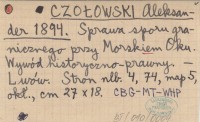 CZOŁOWSKI Aleksan-
der 1894. Sprawa sporu gra-
nicznego przy Morskiem Oku.
Wywód historyczno-prawny. —
Lwów. Stron nlb. 4, 74, map 5,
okł., cm 27 x 18. CBG-MT-WHP